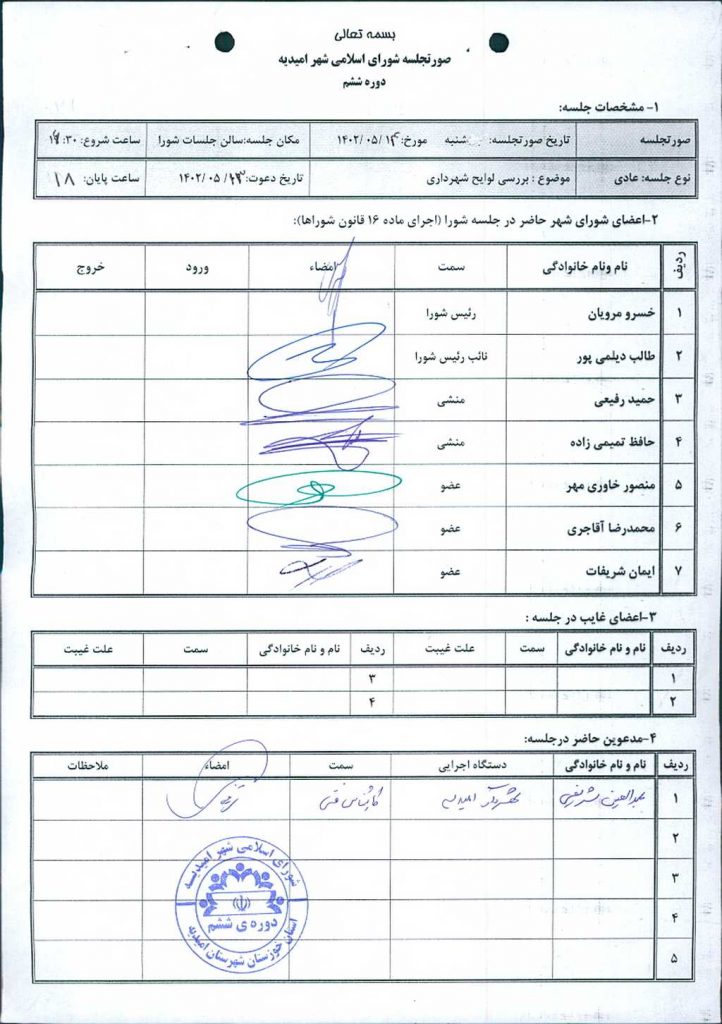 بسمه تعالی
صورتجلسه شورای اسلامی شهر امیدیه
دوره ششم
۱- مشخصات جلسه:
صورتجلسه تاریخ صورتجلسه: شنبه مورخ: ۱۴۰۲/۰۵/ مکان جلسه:سالن جلسات شورا ساعت شروع: :۳۰
نوع جلسه: عادی موضوع : بررسی لوایح شهرداری تاریخ دعوت: ۱۴۰۲/۰۵/ ساعت پایان: ۱۸
۲-اعضای شورای شهر حاضر در جلسه شورا (اجرای ماده ۱۶ قانون شوراها):
ردیف نام ونام خانوادگی سمت امضاء ورود خروج
۱ خسرو مرویان رئیس شورا
۲ طالب دیلمی پور نائب رئیس شورا
۳ حمید رفیعی منشی
۴ حافظ تمیمی زاده منشی
۵ منصور خاوری مهر عضو
۶ محمدرضا آقاجری عضو
۷ ایمان شریفات عضو
۳-اعضای غایب در جلسه :
ردیف نام و نام خانوادگی سمت علت غیبت ردیف نام و نام خانوادگی سمت علت غیبت
۱ ۳
۲ ۴
۴-مدعوین حاضر درجلسه:
ردیف نام و نام خانوادگی دستگاه اجرایی سمت امضاء ملاحظات
۱ امیدیه کارشناس فنی
۲
۳
۴
۵
شورای اسلامی شهر امیدیه
دوره ی ششم
استان خوزستان شهرستان امیدیه